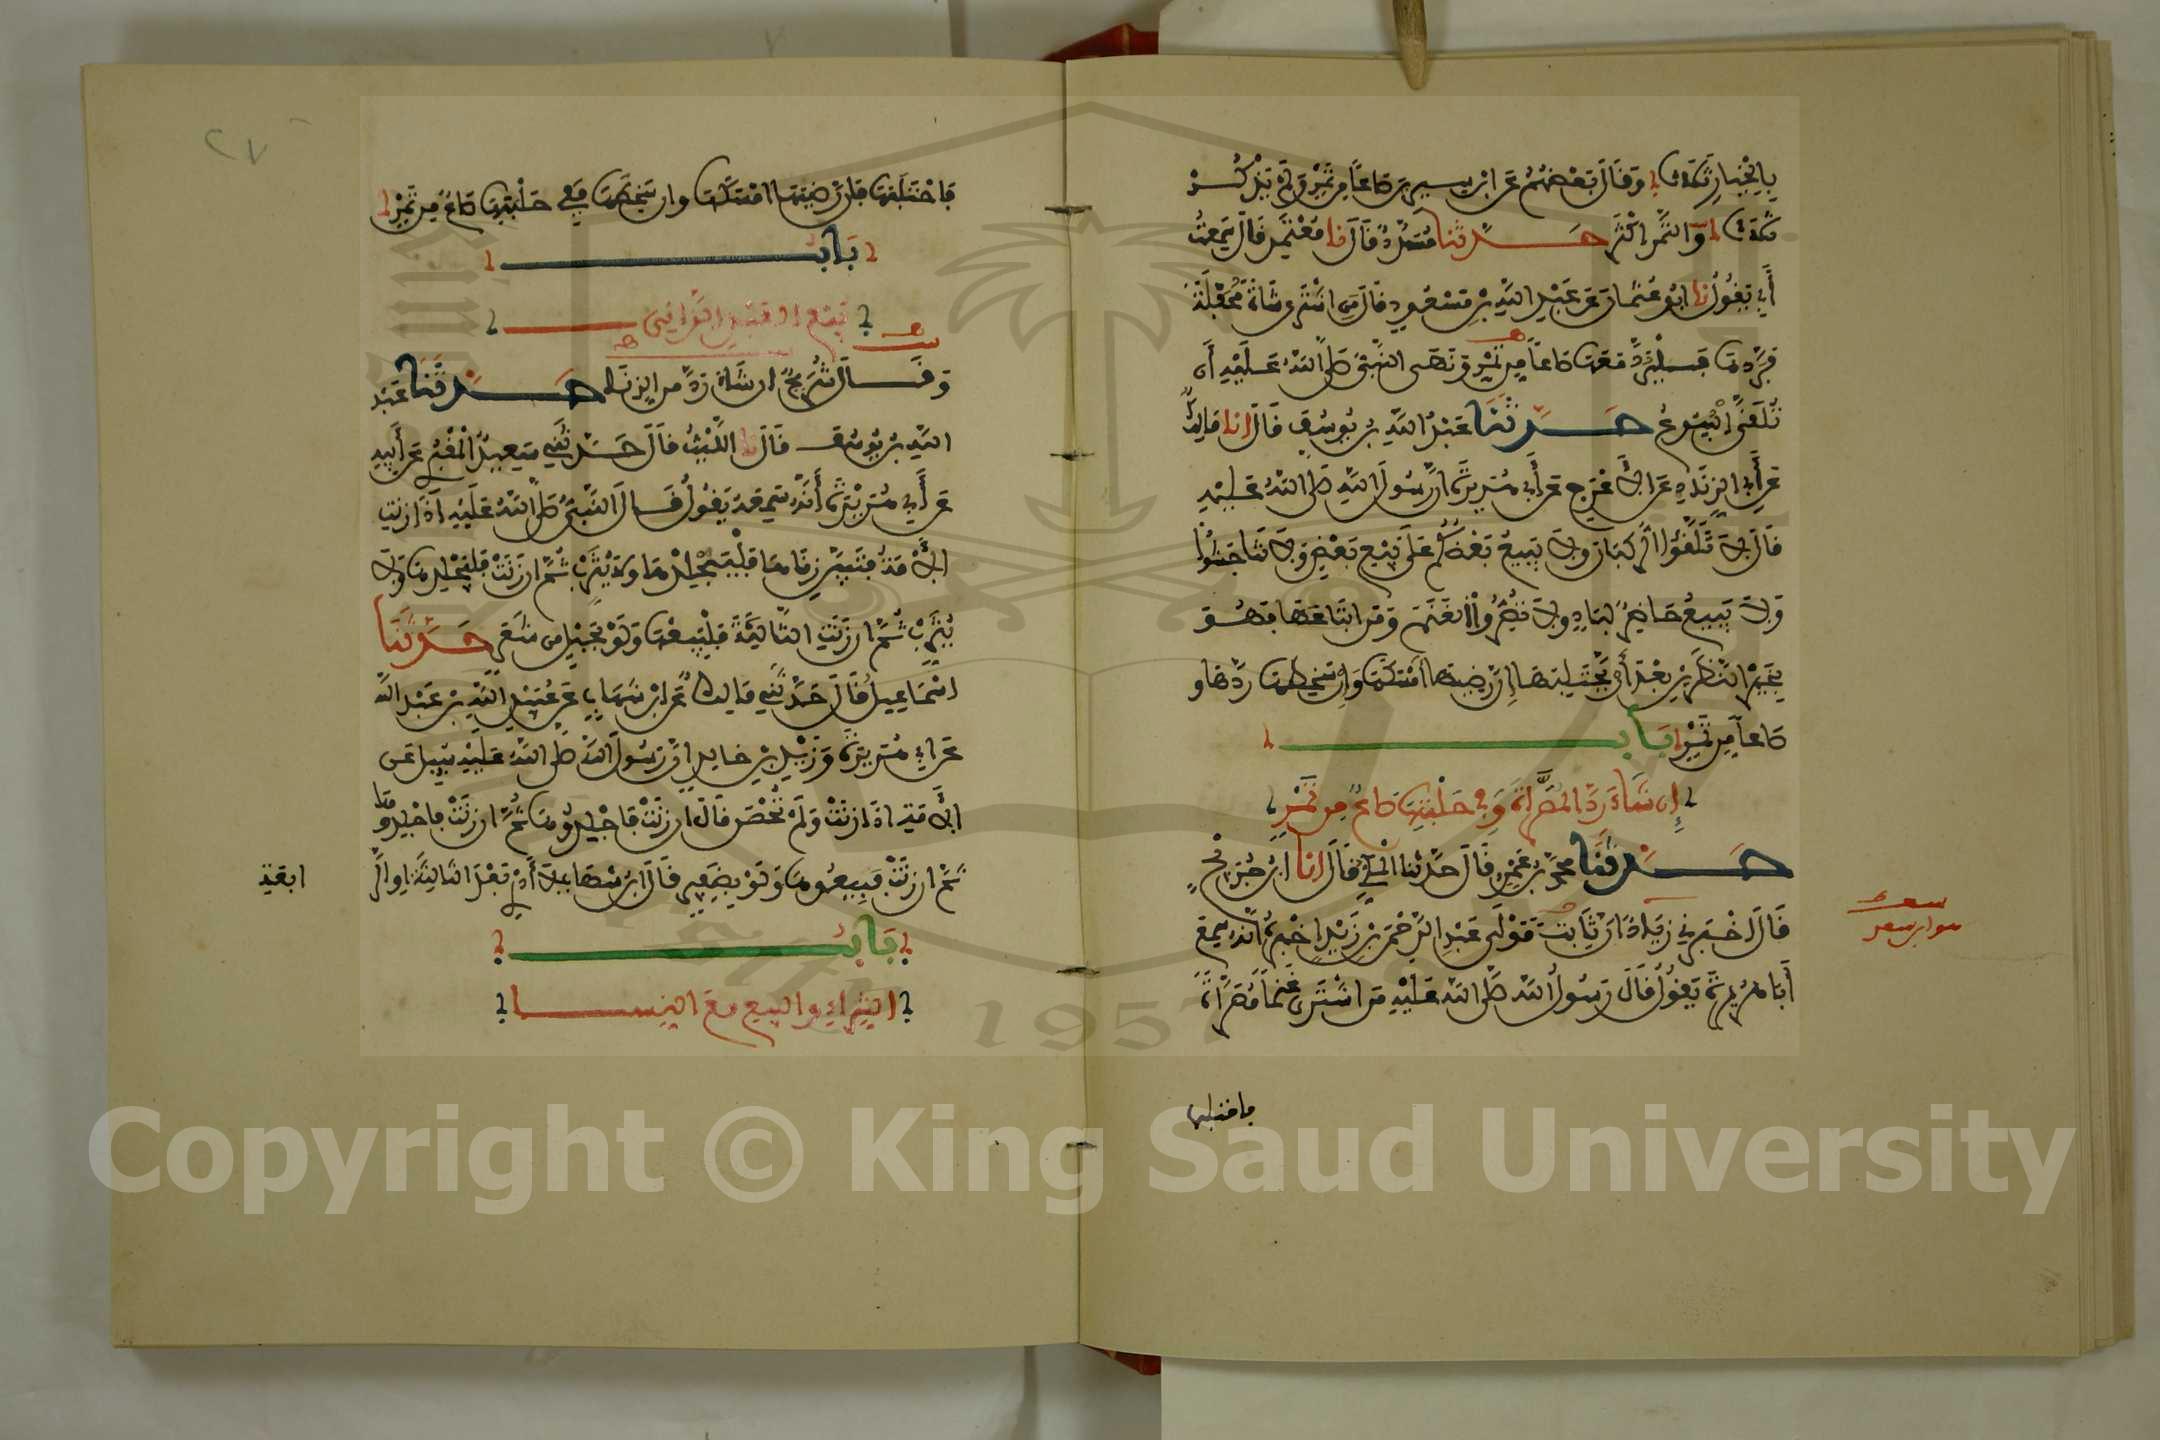 بِالْخِيَارِ ثَلَاثًا وَقَالَ بَعْضُهُمْ عَنِ ابْنِ سِيرِينَ صَاعًا مِنْ تَمْرٍ وَلَمْ يَذْكُرْ
ثَلَاثًا وَالتَّمْرُ أَكْثَرُ حَدَّثَنَا مُسَدَّدٌ قَالَ نا مُعْتَمِرٌ قَالَ سَمِعْتُ
أَبِي يَقُولُ نا أَبُو عُثْمَانَ عَنْ عَبْدِ اللَّهِ بْنِ مَسْعُودٍ قَالَ مَنِ اشْتَرَى شَاةً مُحَفَّلَةً
فَرَدَّهَا فَلْيَرُدَّ مَعَهَا صَاعًا مِنْ تَمْرٍ وَنَهَى النَّبِيُّ صَلَّى اللَّهُ عَلَيْهِ أَنْ
تُلَقَّى الْبُيُوعُ حَدَّثَنَا عَبْدُ اللَّهِ بْنُ يُوسُفَ قَالَ انا مَالِكٌ
عَنْ أَبِي الزِّنَادِ عَنِ الْأَعْرَجِ عَنْ أَبِي هُرَيْرَةَ أَنَّ رَسُولَ اللَّهِ صَلَّى اللَّهُ عَلَيْهِ
قَالَ لَا تَلَقَّوُا الرُّكْبَانَ وَلَا يَبِيعُ بَعْضُكُمْ عَلَى بَيْعِ بَعْضٍ وَلَا تَنَاجَشُوا
وَلَا يَبِيعُ حَاضِرٌ لِبَادٍ وَلَا تُصَرُّوا الْغَنَمَ وَمَنِ ابْتَاعَهَا فَهُوَ
بِخَيْرِ النَّظَرَيْنِ بَعْدَ أَنْ يَحْتَلِبَهَا إِنْ رَضِيَهَا أَمْسَكَهَا وَإِنْ سَخِطَهَا رَدَّهَا وَ
صَاعًا مِنْ تَمْرٍ بَابٌ
إِنْ شَاءَ رَدَّ الْمُصَرَّاةَ وَفِي حَلْبَتِهَا صَاعٌ مِنْ تَمْرٍ
حَدَّثَنَا مُحَمَّدُ بْنُ عَمْرٍو قَالَ حَدَّثَنَا الْمَكِّيُّ قَالَ انا ابْنُ جُرَيْجٍ
قَالَ أَخْبَرَنِي زِيَادٌ أَنَّ ثَابِتًا مَوْلَى عَبْدِ الرَّحْمَنِ بْنِ زَيْدٍ أَخْبَرَهُ أَنَّهُ سَمِعَ
أَبَا هُرَيْرَةَ يَقُولُ قَالَ رَسُولُ اللَّهِ صَلَّى اللَّهُ عَلَيْهِ مَنِ اشْتَرَى غَنَمًا مُصَرَّاةً
فاحتلبها
سعد
هو ابن سعد
٢٧
فَاحْتَلَبَهَا فَإِنْ رَضِيَهَا أَمْسَكَهَا وَإِنْ سَخِطَهَا فَفِي حَلْبَتِهَا صَاعٌ مِنْ تَمْرٍ
بَابُ
بَيْعِ الْعَبْدِ الزَّانِي
وَقَالَ شُرَيْحٌ إِنْ شَاءَ رَدَّ مِنَ الزِّنَا حَدَّثَنَا عَبْدُ
اللَّهِ بْنُ يُوسُفَ قَالَ نا اللَّيْثُ قَالَ حَدَّثَنِي سَعِيدٌ الْمَقْبُرِيُّ عَنْ أَبِيهِ
عَنْ أَبِي هُرَيْرَةَ أَنَّهُ سَمِعَهُ يَقُولُ قَالَ النَّبِيُّ صَلَّى اللَّهُ عَلَيْهِ إِذَا زَنَتِ
الْأَمَةُ فَتَبَيَّنَ زِنَاهَا فَلْيَجْلِدْهَا وَلَا يُثَرِّبْ ثُمَّ إِنْ زَنَتْ فَلْيَجْلِدْهَا وَلَا
يُثَرِّبْ ثُمَّ إِنْ زَنَتِ الثَّالِثَةَ فَلْيَبِعْهَا وَلَوْ بِحَبْلٍ مِنْ شَعَرٍ حَدَّثَنَا
إِسْمَاعِيلُ قَالَ حَدَّثَنِي مَالِكٌ عَنِ ابْنِ شِهَابٍ عَنْ عُبَيْدِ اللَّهِ بْنِ عَبْدِ اللَّهِ
عَنْ أَبِي هُرَيْرَةَ وَزَيْدِ بْنِ خَالِدٍ أَنَّ رَسُولَ اللَّهِ صَلَّى اللَّهُ عَلَيْهِ سُئِلَ عَنِ
الْأَمَةِ إِذَا زَنَتْ وَلَمْ تُحْصَنْ قَالَ إِنْ زَنَتْ فَاجْلِدُوهَا ثُمَّ إِنْ زَنَتْ فَاجْلِدُوهَا
ثُمَّ إِنْ زَنَتْ فَبِيعُوهَا وَلَوْ بِضَفِيرٍ قَالَ ابْنُ شِهَابٍ لَا أَدْرِي بَعْدَ الثَّالِثَةِ أَوِ الرَّ
ابعة
بَابُ
الشِّرَاءِ وَالْبَيْعِ مَعَ النِّسَاءِ
Copyright © King Saud University
1957